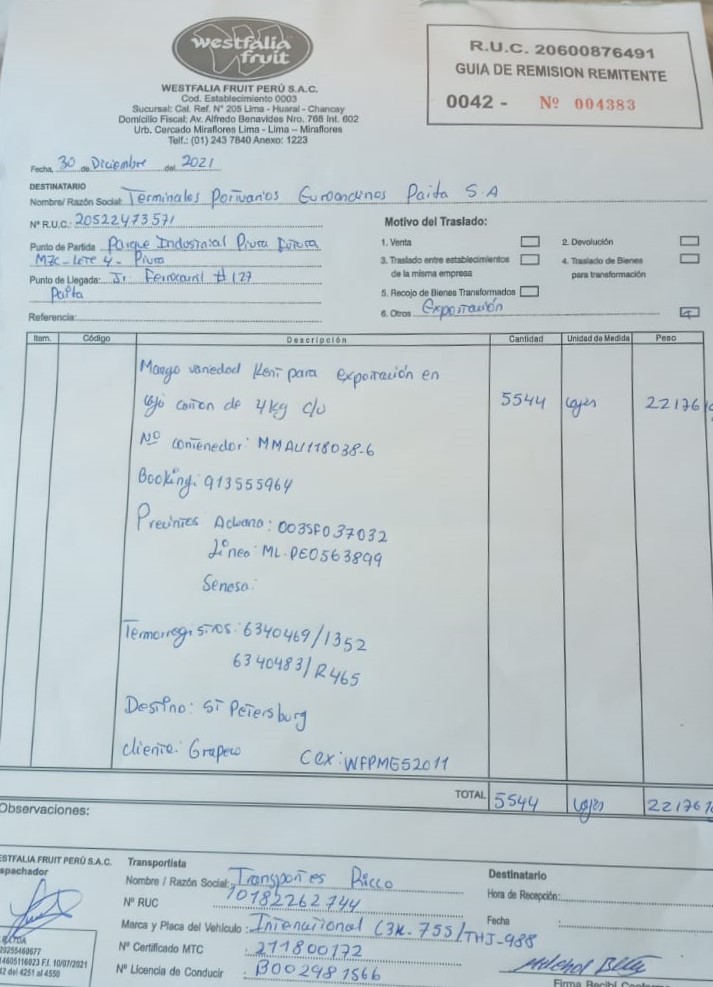 westfalia
fruit
WESTFALIA FRUIT PERÚ S.A.C.
Cod. Establecimiento 0003
Sucursal: Cal. Ref. N° 205 Lima - Huaral - Chancay
Domicilio Fiscal: Av. Alfredo Benavides Nro. 768 Int. 602
Urb. Cercado Miraflores Lima - Lima - Miraflores
Telf.: (01) 243 7840 Anexo: 1223
R.U.C. 20600876491
GUIA DE REMISION REMITENTE
0042 - Nº 004383
Fecha, 30 de Diciembre del 2021
DESTINATARIO
Nombre/ Razón Social: Terminales Portuarios Euroandinos Paita S.A
N° R.U.C. 20522473571
Punto de Partida Parque Industrial Piura Futura
MZC - Lote 4 - Piura
Punto de Llegada: Jr. Ferrocarril # 127
Paita
Referencia:
Motivo del Traslado:
1. Venta
2. Devolución
3. Traslado entre establecimientos
de la misma empresa
4. Traslado de Bienes
para transformación
5. Recojo de Bienes Transformados
6. Otros Exportación
Item. Código Descripción Cantidad Unidad de Medida Peso
Mango variedad Kent para exportación en
caja carton de 4kg c/u 5544 cajas 22176
Nº contenedor: MMAU118038-6
Booking: 913555964
Precintos Aduana: 003SF037032
Línea: ML-PE0563899
Senasa:
Termorregistros: 6340469/1352
6340483/R465
Destino: ST Petersburg
cliente: Grapeco CEX: WFPMG52011
TOTAL 5544 cajas 22176
Observaciones:
ESTFALIA FRUIT PERÚ S.A.C.
spachador
Transportista
Nombre / Razón Social: Transportes Ricco
N° RUC 10182262744
Marca y Placa del Vehículo : International C3K-755/THJ-988
N° Certificado MTC : 211800172
N° Licencia de Conducir : B002981566
Destinatario
Hora de Recepción:
Fecha :
20255460677
14605116023 F.I. 10/07/2021
42 del 4251 al 4550
Firma Recibí Conforme